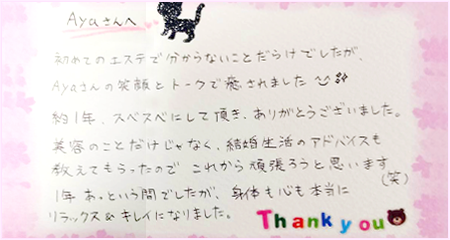 Ayaさんへ
初めてのエステで分からないことだらけでしたが、
Ayaさんの笑顔とトークで癒されました
約1年、スベスベにして頂き、ありがとうございました。
美容のことだけじゃなく、結婚生活のアドバイスも
教えてもらったので これから頑張ろうと思います
(笑)
1年 あっという間でしたが、身体も心も本当に
リラックス&キレイになりました。
Thank you